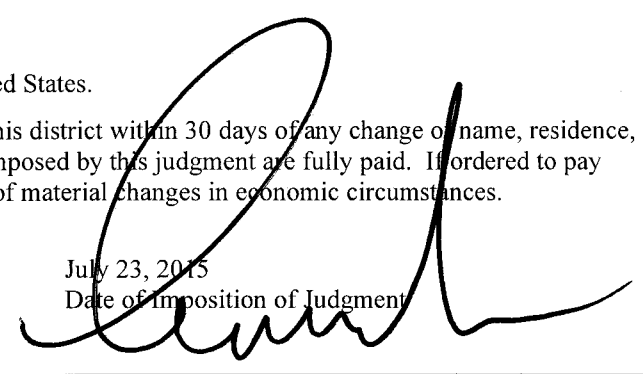 ed States.
his district within 30 days of any change of name, residence,
mposed by this judgment are fully paid. If ordered to pay
of material changes in economic circumstances.
July 23, 2015
Date of Imposition of Judgment